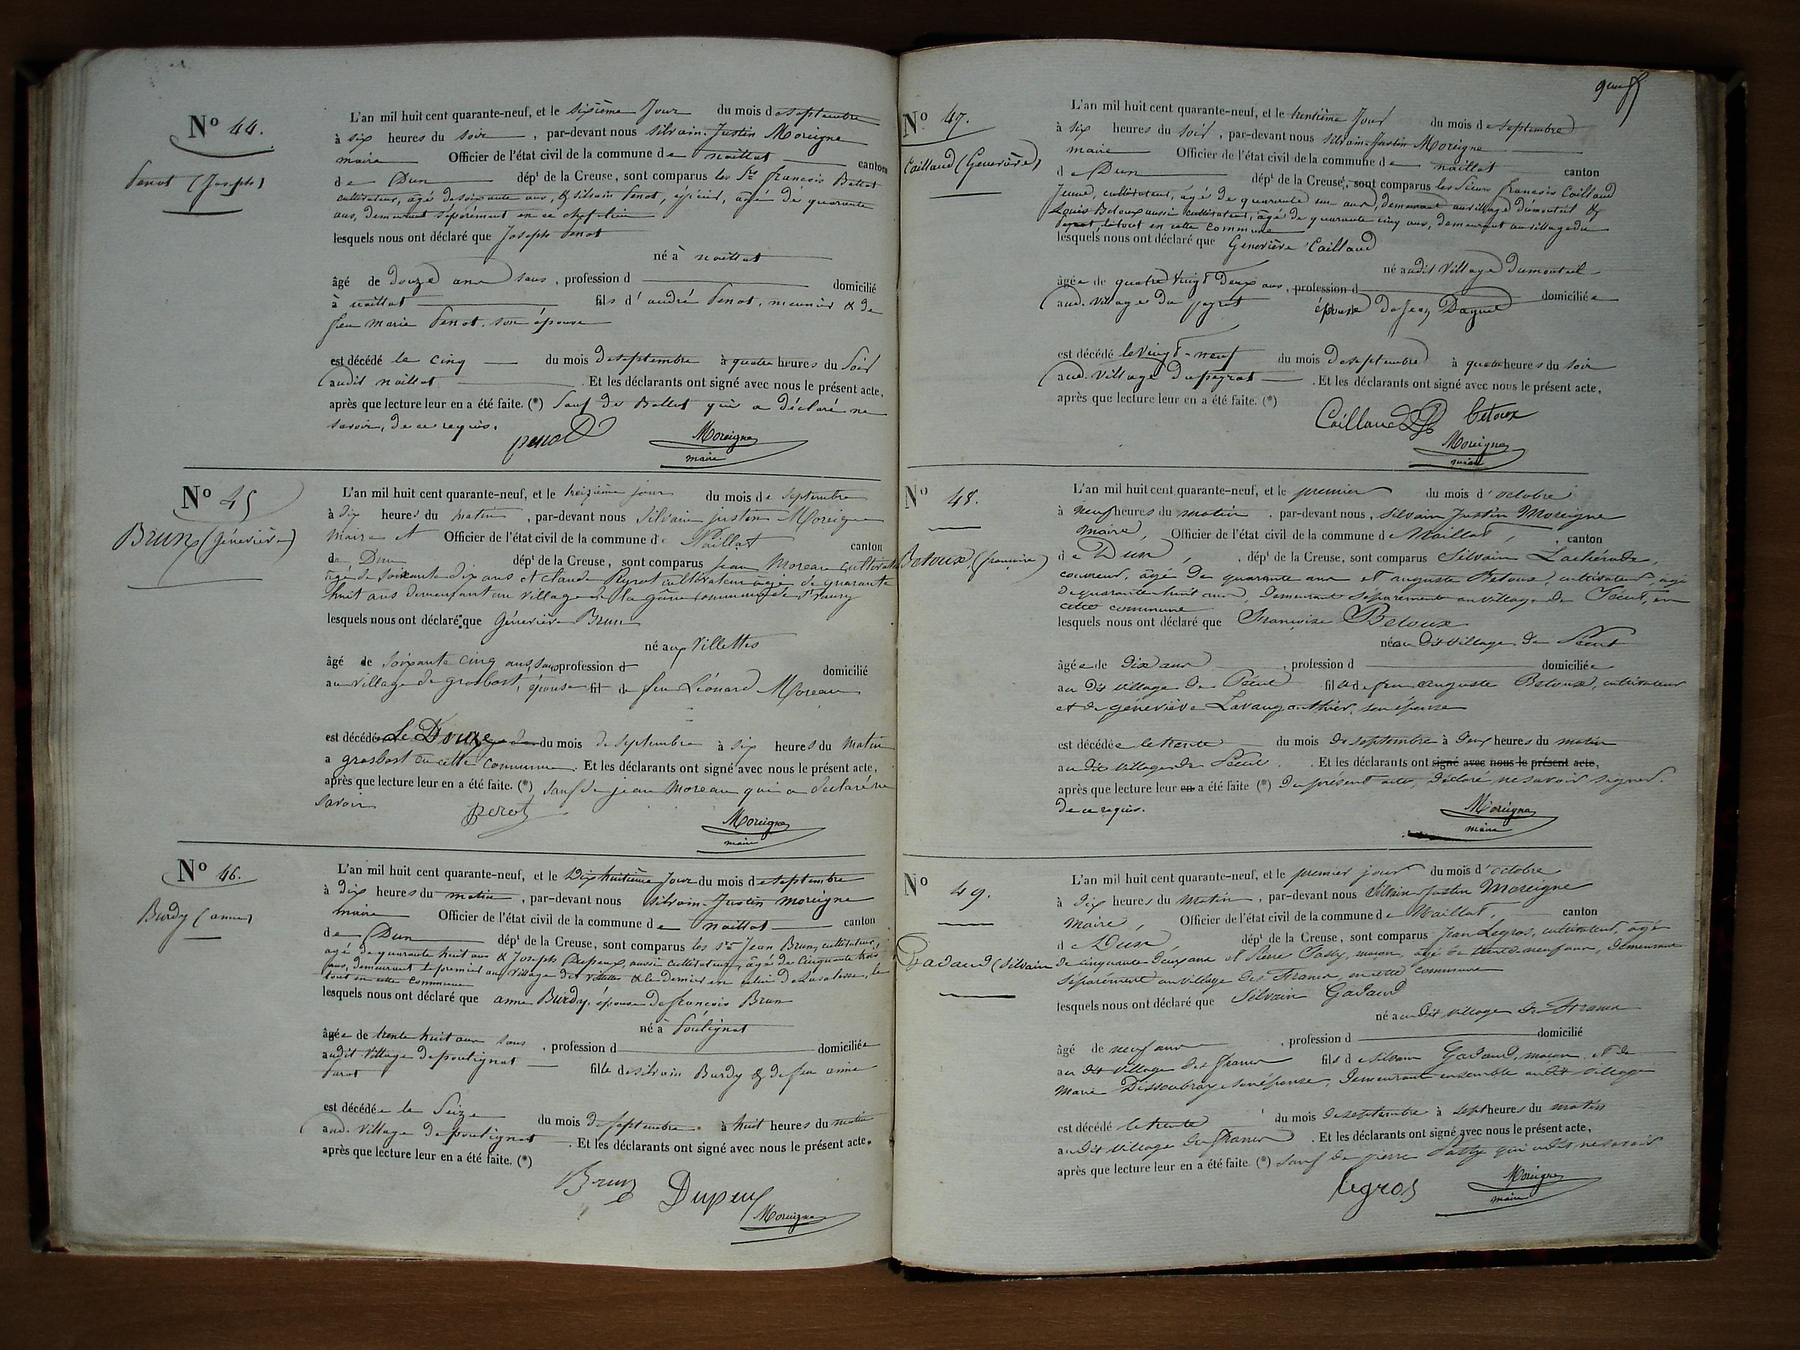 Nº 44.
Penot (Joseph)
L'an mil huit cent quarante-neuf, et le sixième Jour du mois de septembre
à six heures du soir, par-devant nous silvain-Justin Moreigne
maire Officier de l'état civil de la commune de naillat canton
de Dun dépt de la Creuse, sont comparus les Srs françois Ballet
cultivateur, âgé de soixante ans, & silvain Penot, épicier, âgé de quarante
ans, demeurant séparément en ce chef-lieu
lesquels nous ont déclaré que Joseph Penot
né à naillat
âgé de douze ans sans, profession d domicilié
à naillat fils d'andré Penot, meunier & de
feu marie Penot, son épouse
est décédé le cinq du mois de septembre à quatre heures du soir
audit naillat. Et les déclarants ont signé avec nous le présent acte,
après que lecture leur en a été faite. (*) Sauf de Ballet qui a déclaré ne
savoir, de ce requis.
penot Moreigne
maire
Nº 45
Brun (Géneviève)
L'an mil huit cent quarante-neuf, et le treizième jour du mois de septembre
à dix heures du matin, par-devant nous Silvain justin Moreigne
maire et Officier de l'état civil de la commune de Naillat canton
de Dun dépt de la Creuse, sont comparus jean Moreau cultivateur
âgé de soixante dix ans et claude Peyrot cultivateur âgé de quarante
huit ans demeurant au village de la commune de
lesquels nous ont déclaré que Géneviève Brun
né aux Villettes
âgé de soixante cinq ans, sans profession d domicilié
au village de grosbost, épouse fil de feu Léonard Moreau
est décédé Le Douze du mois de septembre à six heures du matin
a grosbost en cette commune. Et les déclarants ont signé avec nous le présent acte,
après que lecture leur en a été faite. (*) Sauf de jean Moreau qui a déclaré ne
savoir
Perot Moreigne
maire
Nº 46.
Burdy (anne)
L'an mil huit cent quarante-neuf, et le Dix huitième Jour du mois de septembre
à dix heures du matin, par-devant nous silvain-Justin moreigne
maire Officier de l'état civil de la commune de naillat canton
de Dun dépt de la Creuse, sont comparus les Srs Jean Brun, cultivateur,
agé de quarante huit ans & Joseph Dupeux, aussi cultivateur, âgé de cinquante trois
ans, demeurant le premier au village des villettes & le dernier en celui de Lasalesse, le
tout en cette commune
lesquels nous ont déclaré que anne Burdy, épouse de françois Brun
né à Poulignat
âgée de trente huit ans sans, profession d domiciliée
audit village de poulignat fille de silvain Burdy & de feu anne
est décédée le Seize du mois de septembre à huit heures du matin
aud. village de poulignat. Et les déclarants ont signé avec nous le présent acte.
après que lecture leur en a été faite. (*)
Brun Dupeux
Moreigne
Nº 47.
Caillaud (Geneviève)
L'an mil huit cent quarante-neuf, et le trentième Jour du mois de septembre
à six heures du soir, par-devant nous silvain-Justin Moreigne
maire Officier de l'état civil de la commune de naillat canton
de Dun dépt de la Creuse, sont comparus les Sieurs françois Caillaud
Jeune, cultivateur, âgé de quarante un ans, demeurant au village dumonteil &
Louis Betoux aussi cultivateur, âgé de quarante cinq ans, demeurant au village du
peyrat, le tout en cette commune
lesquels nous ont déclaré que Geneviève Caillaud
né audit village dumonteil
âgée de quatre vingt deux ans, profession d domiciliée
aud. village du peyrat épouse de Jean
est décédé le vingt-neuf du mois de septembre à quatre heures du soir
aud. village du peyrat. Et les déclarants ont signé avec nous le présent acte,
après que lecture leur en a été faite. (*)
Caillaud betoux
Moreigne
maire
Nº 48.
Betoux (françoise)
L'an mil huit cent quarante-neuf, et le premier du mois d'octobre
à neuf heures du matin, par-devant nous, silvain Justin Moreigne
maire, Officier de l'état civil de la commune de Naillat, canton
de Dun, dépt de la Creuse, sont comparus Silvain
couvreur, âgé de quarante ans et auguste Betoux, cultivateur, âgé
de quarante huit ans, demeurant séparément au village de en
cette commune
lesquels nous ont déclaré que Françoise Betoux
né au dit village de
âgée de dix ans, profession d domiciliée
au dit village de fille de feu auguste Betoux, cultivateur
et de géneviève son épouse
est décédée le trente du mois de septembre à deux heures du matin
au dit village de. Et les déclarants ont signé avec nous le présent acte,
après que lecture leur en a été faite (*) du présent acte, déclaré ne savoir signer.
de ce requis.
Moreigne
maire
Nº 49.
Gadaud (Silvain
L'an mil huit cent quarante-neuf, et le premier jour du mois d'octobre
à dix heures du Matin, par-devant nous Silvain Justin Moreigne
Maire, Officier de l'état civil de la commune de Naillat, canton
d Dun, dépt de la Creuse, sont comparus Jean Legros, cultivateur, agé
de cinquante deux ans et Pierre maçon, agé de trente neuf ans, demeurant
séparément au village des en cette commune
lesquels nous ont déclaré que Silvain Gadaud
né au dit village des
âgé de neuf ans, profession d domicilié
au dit village des fils de silvain Gadaud, maçon, et de
Marie son épouse, demeurant ensemble au dit village
est décédé le trente du mois de septembre à sept heures du matin
au dit village des. Et les déclarants ont signé avec nous le présent acte,
après que lecture leur en a été faite (*) sauf de pierre qui a dit ne savoir
legros Moreigne
maire